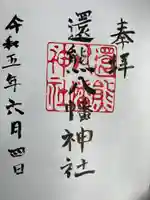 奉拝
還熊八幡神社
還熊
神社
令和五年六月四日